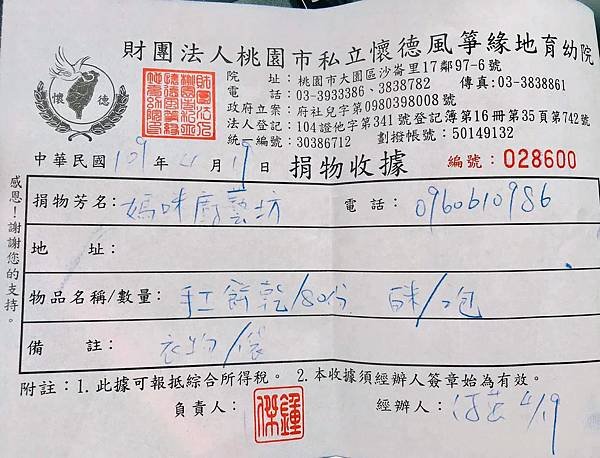 財團法人桃園市私立懷德風箏緣地育幼院
懷 德
院 址：桃園市大園區沙崙里17鄰97-6號
電 話：03-3933386、3838782 傳真:03-3838861
政府立案：府社兒字第0980398008號
法人登記：104證他字第341號登記簿第16冊第35頁第742號
統一編號：30386712 劃撥帳號：50149132
中華民國 109 年 4 月 19 日 捐物收據 編號：028600
感恩！謝謝您的支持。
捐物芳名：媽咪廚藝坊 電話：0960610986
地 址：
物品名稱/數量：手工餅乾/80份 白米/ 包
備 註：衣物/袋
附註：1.此據可報抵綜合所得稅。 2.本收據須經辦人簽章始為有效。
負責人： 鍾傑 經辦人： 4/19